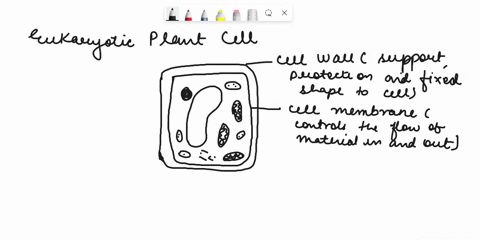 Eukaryotic Plant Cell
cell wall ( support,
protection and fixed
shape to cell)
cell membrane (
controls the flow of
material in and out)